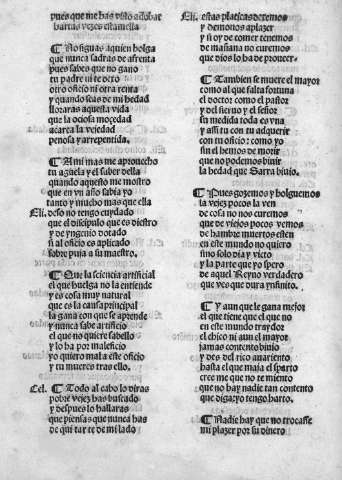 pues que me has visto adobar
hartas vezes esta melia
¶ No sigas a quien holga
que nunca sacras de afrenta
pues sabes que no gano
tu padre ni de otro
otro oficio ni otra renta
y quando seas de mi hedad
lloraras aquesta vida
que la ociosa mocedad
acarea la vejedad
penosa y arrepentida.
¶ A mi mas me aprouecho
tu aguela y el saber della
quando aqueste me mostro
que en vn año sabia yo
tanto y mucho mas que ella
Eli. desso no tengo cuydado
que el discipulo que es diestro
y de yngenio dotado
si al oficio es aplicado
sobre puja a su maestro.
¶ Que la sciencia artificial
el que huelga no la entiende
y es cosa muy natural
que es la causa principal
la gana con que se aprende
y nunca sabe artificio
el que no quiere sabello
y lo ha por maleficio
yo quiero mal a este oficio
y tu mueres tras ello.
Cel. ¶ Todo al cabo lo diras
pobre vejez has buscado
y despues lo hallaras
que piensas que nunca has
de quitarte de mi lado
Eli. estas platicas dexemos
y demonos a plazer
y si oy de comer tenemos
de mañana no curemos
que dios lo ha de proueer.
¶ Tambien se muere el mayor
como al que falta fortuna
el doctor como el pastor
y del sieruo y el señor
su medida toda es vna
y assi tu con tu adquerir
con tu oficio: como yo
sin el hemos de morir
que no podemos biuir
la hedad que Sarra biuio.
¶ Pues gozemos y holguemos
la vejez pocos la ven
de cosa no nos curemos
que de viejos pocos vemos
de hambre muertos esten
en este mundo no quiero
sino solo dia y victo
y la parte que yo spero
de aquel Reyno verdadero
que ves que dura ynfinito.
¶ Y aun que le gana mejor
el que tiene que el que no
en este mundo traydor
el chico ni aun el mayor
jamas contento biuio
y des del rico auariento
hasta el que maja el sparto
cree me que no te miento
que no hay nadie tan contento
que diga yo tengo harto.
¶ Nadie hay que no trocasse
mi plazer por su dinero